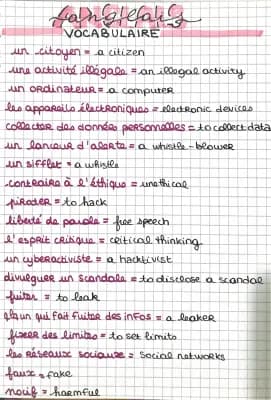 Anglais
VOCABULAIRE
un citoyen = a citizen
une activité illégale = an illegal activity
un ordinateur = a computer
les appareils électroniques = electronic devices
collecter des données personnelles = to collect data
un lanceur d'alerte = a whistle-blower
un sifflet = a whistle
contraire à l'éthique = unethical
pirater = to hack
liberté de parole = free speech
l'esprit critique = critical thinking
un cyberactiviste = a hacktivist
divulguer un scandale = to disclose a scandal
fuiter = to leak
qlqun qui fait fuiter des infos = a leaker
fixer des limites = to set limits
les réseaux sociaux = social networks
faux = fake
nocif = harmful